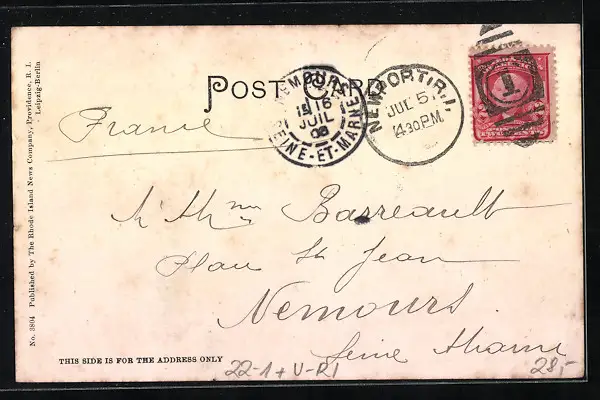 POST CARD
NEMOURS
16
JUIL
SEINE-ET-MARNE
NEWPORT, R.I.
JUL 5
4.30 P.M.
1
France
Barreault
St Jean
Nemours.
Seine
THIS SIDE IS FOR THE ADDRESS ONLY
22-1 + V-RI
28,-
No. 3804 Published by The Rhode Island News Company, Providence, R. I.
Leipzig-Berlin